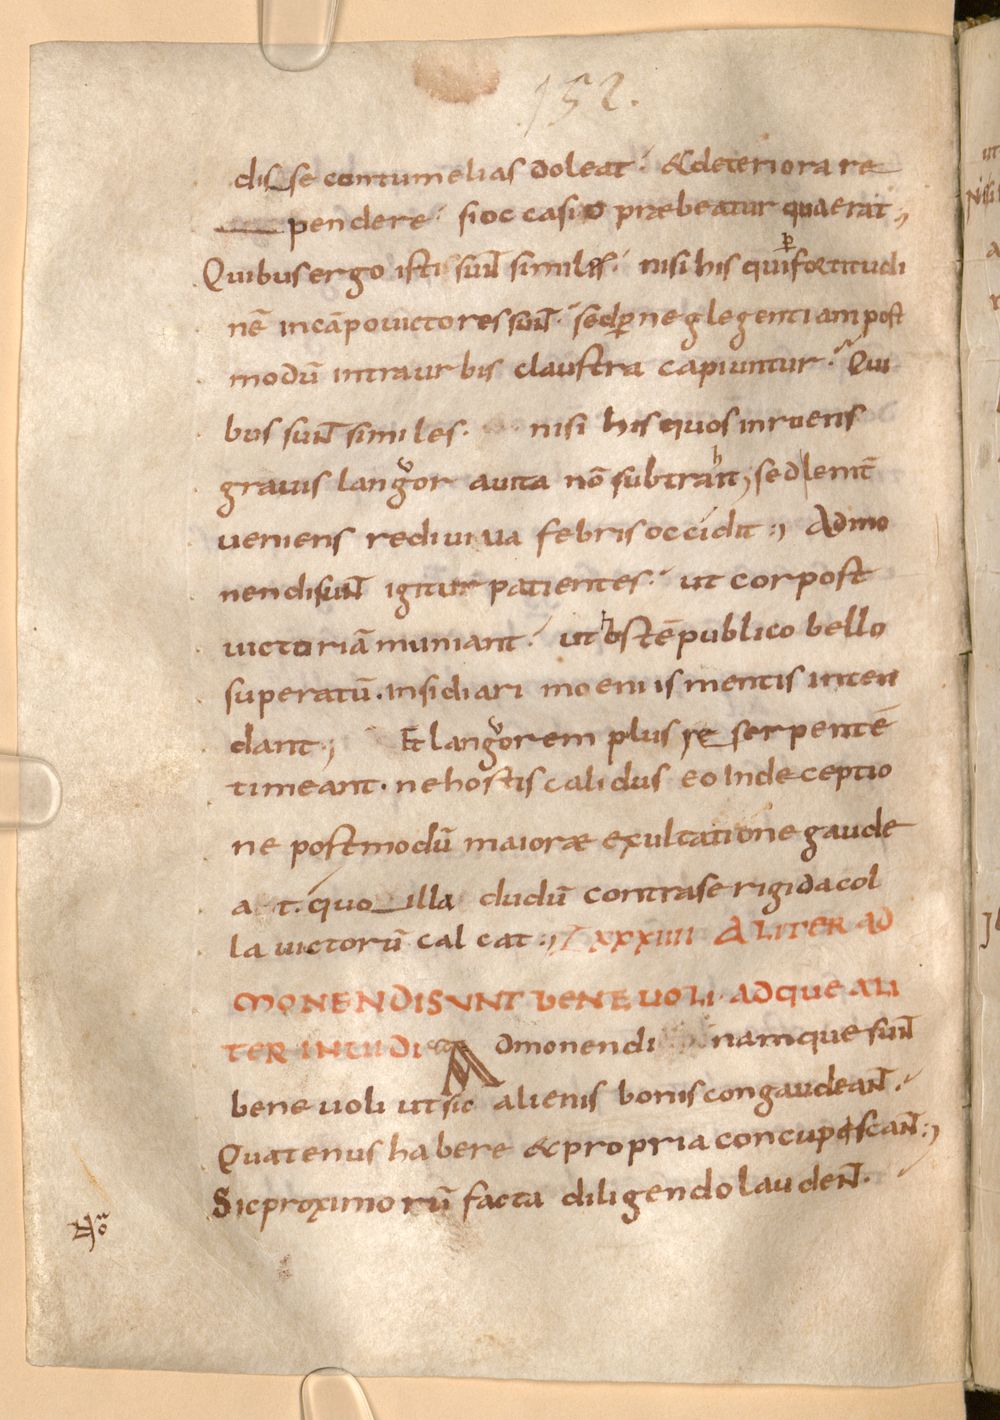 152.
dis se contumelias doleat. &deteriora re
pendere. si occasio præbeatur quaerat;
Quibus ergo isti sunt similes. nisi his qui ꝑ fortitudi
nē in cāpo uictores sunt. sed ꝑ neglegentiam post
modū intra urbis claustra capiuntur. Qui
bus sunt similes. nisi his quos inruens
grauis langͮor a uita nō subtrahit, sed lenit̄
ueniens rediuiua febris occidit:, Admo
nendi sunt igitur patientes. ut cor post
uictoriā muniant. ut hostē publico bello
superatū. insidiari moeniis mentis inten
dant; Et langͮorem plus re serpentē
timeant. ne hostis calidus eo in deceptio
ne postmodū maioræ exultatione gaude
a t. quo illa dudū contra se rigida col
la uictorū calcat:, XXXIIII ALITER AD
MONENDI SUNT BENEUOLI. ADQUE ALI
TER INUIDI Admonendi namque sunt
beneuoli ut sic alienis bonis congaudeant.
Quatenus habere & propria concupescant:,
Sic proximorū facta diligendo laudent.